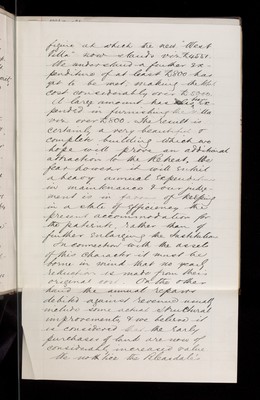 figure at which the new "West
Villa" now stands over £4,
We understand a further ex-
penditure of at least £800 has
yet to be met making the total
cost considerably over
A large amount has also ex-
pended in furnishing the Villa
over £800. The result is
certainly a very beautiful &
complete building which we
hope will prove an additional
attraction to the Retreat, tho'
fear however it will entail
a heavy annual expenditure
in maintenance & our judge-
ment is in favour of keeping
in a state of efficiency the
present accommodation for
the patients, rather than
further enlarging the Institution
In connection with the assets
of this character it must be
borne in mind that no yearly
reduction is made from their
original cost. On the other
hand the annual repairs
debited against revenue usually
include some actual structural
improvements & we believe it
is considered that the early
purchases of land are now of
considerably increased value
We notice the